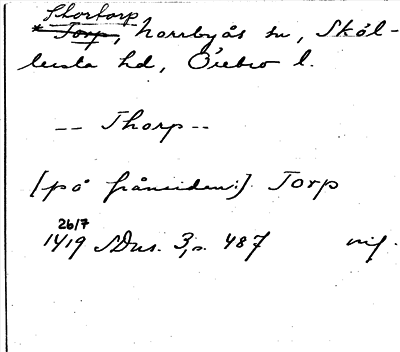 Stortorp
* Torp, Norrbyås sn, Sköl-
lersta hd, Örebro l.
-- Thorp --
[på frånsidan:] Torp
26/7
1419 SDns. 3, s. 487 orig.